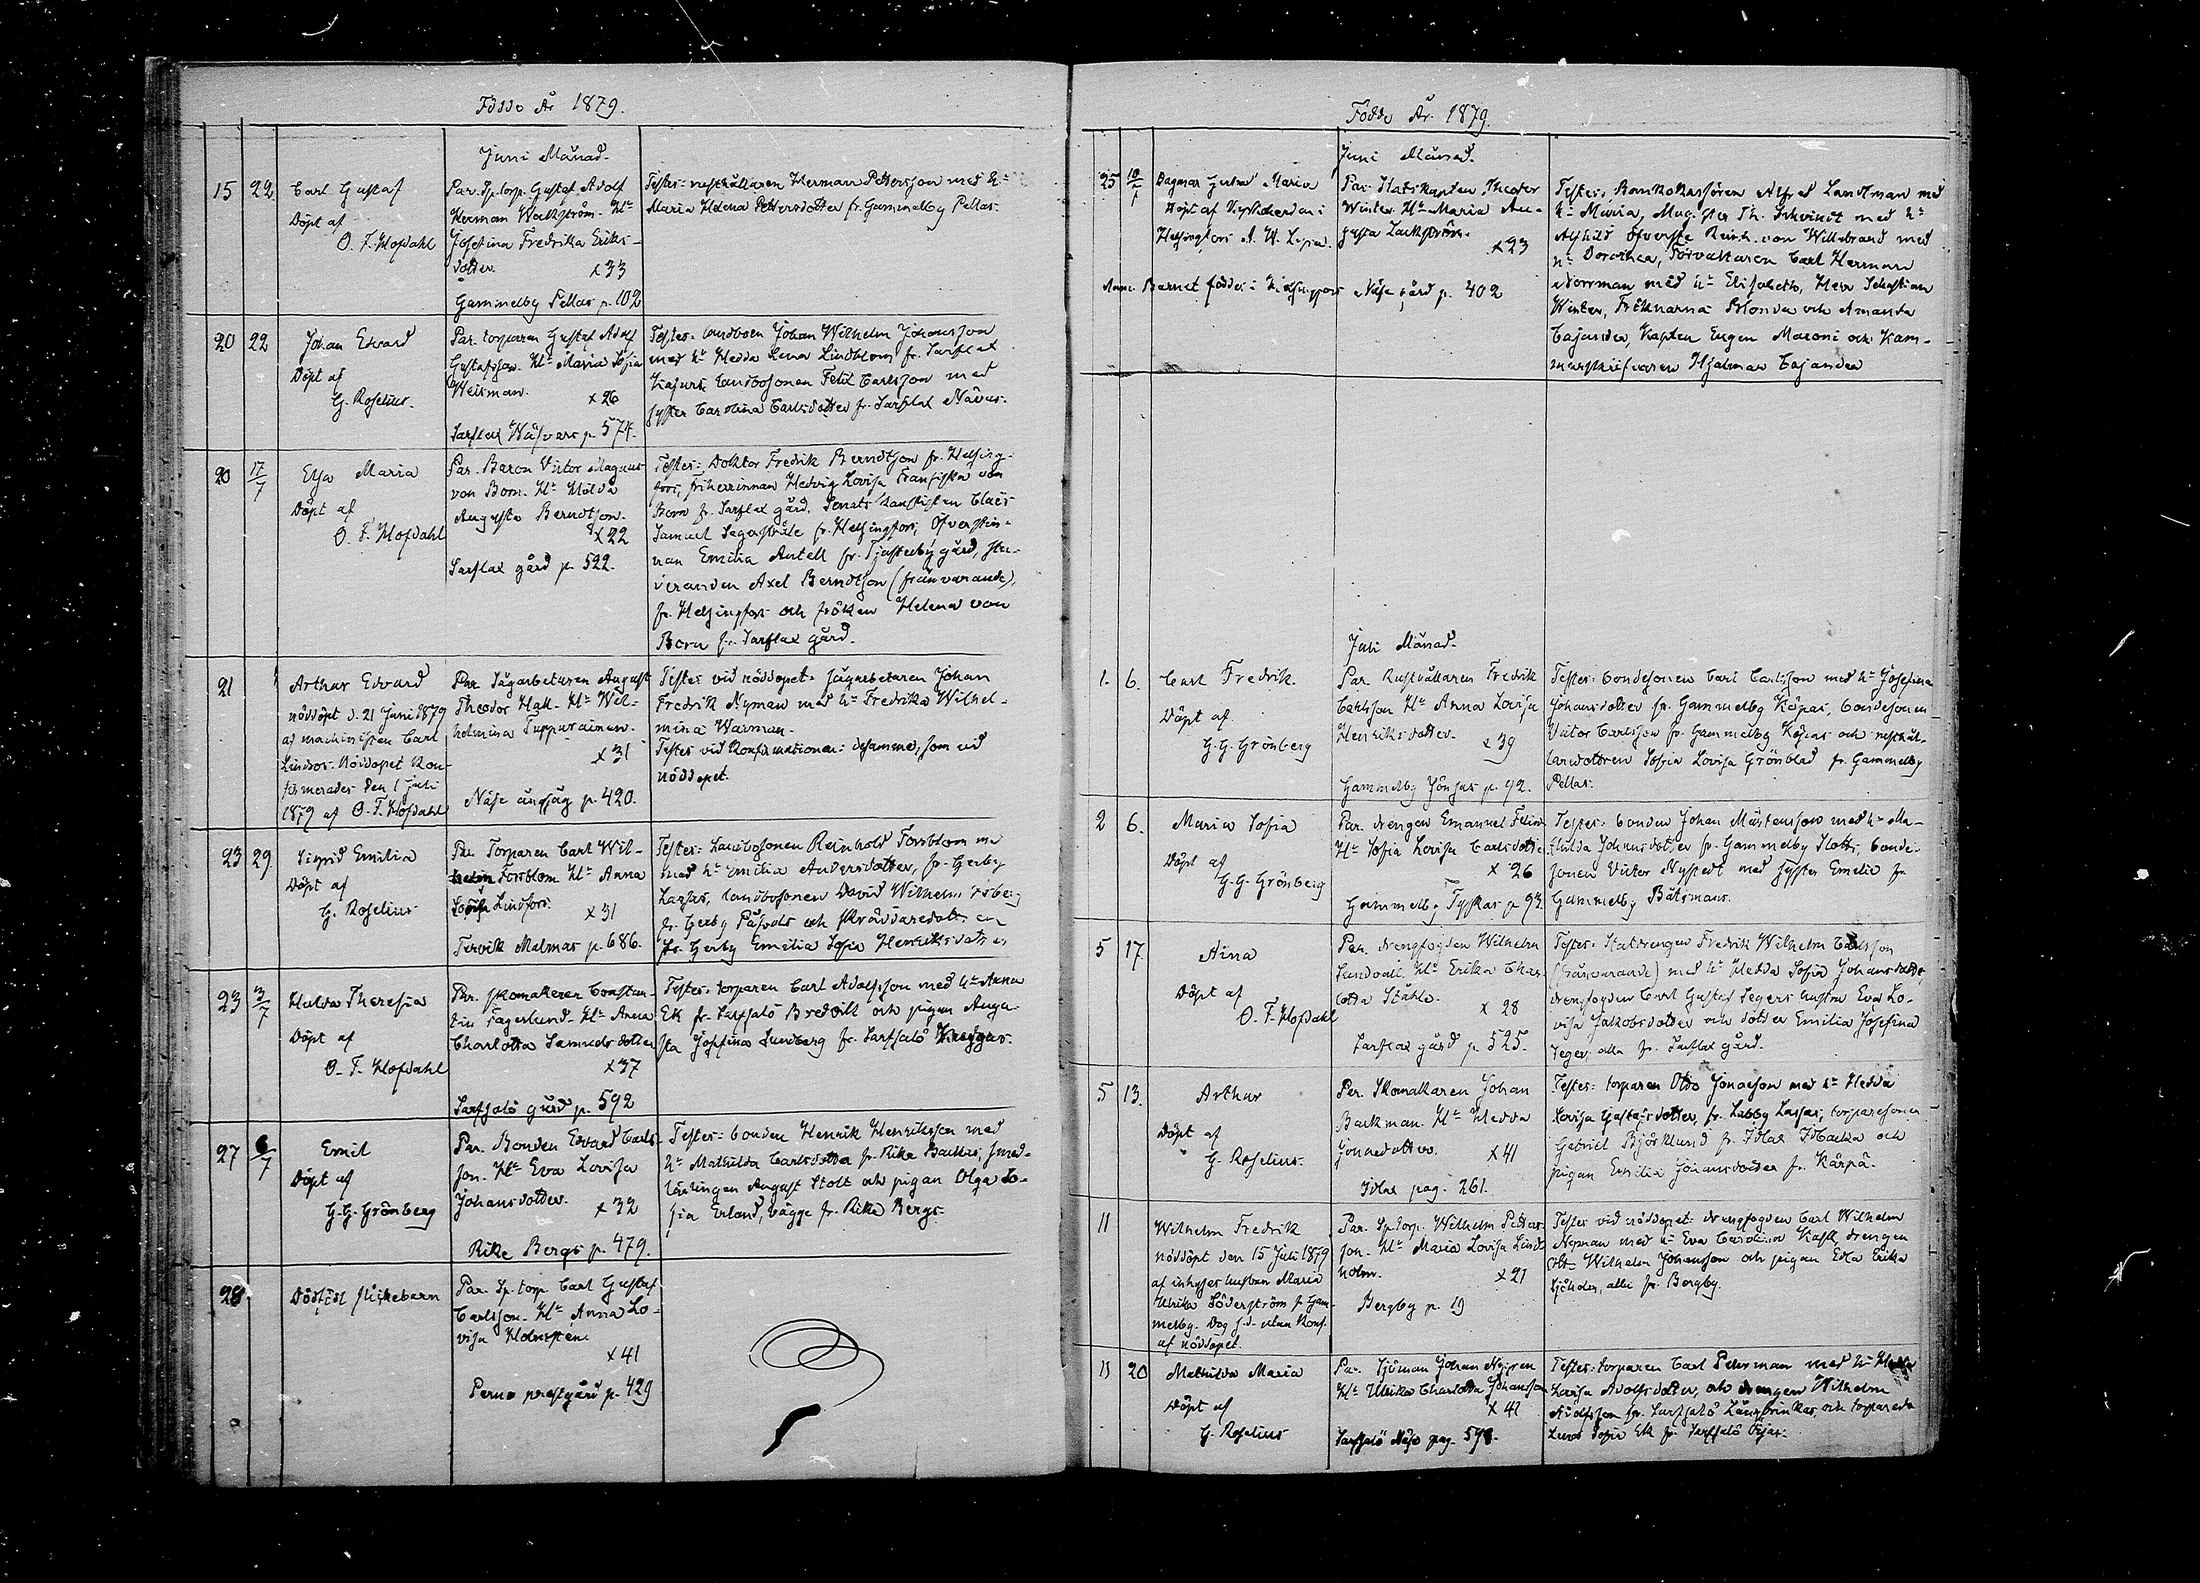 Födde År 1879.
Juni Månad.
15 22 Carl Gustaf
Döpt af
O. F. Hofdahl
Par. Sp. torp. Gustaf Adolf
Herman Walkström. Hu
Josefina Fredrika Eriks-
dotter. x 33
Gammelby Pellas p. 102
Testes: rusthållaren Herman Pettersson med hu
Maria Helena Pettersdotter fr. Gammelby Pellas.
20 22 Johan Edvard
Döpt af
G. Roselius.
Par. torparen Gustaf Adolf
Gustafsson. Hu Maria Sofia
Weisman. x 26
Sarflax p. 574.
Testes: landboen Johan Wilhelm Johansson
med hu Hedda Lena Lindblom fr. Sarflax
landbosonen Felix Carlsson med
syster Carolina Carlsdotter fr. Sarflax
20 17/7 Elsa Maria
Döpt af
O. F. Hofdahl
Par. Baron Victor Magnus
von Born. Hu Hilda
Augusta Berndtson.
x 22
Sarflax gård p. 522.
Testes: Doktor Fredrik Berndtson fr. Helsing-
fors, friherrinnan Hedvig Lovisa Fransiska von
Born fr. Sarflax gård, Senats kanslisten Claës
Samuel Segerstråle fr. Helsingfors, Öfverstin-
nan Emilia Antell fr. Tjusterby gård, stu-
deranden Axel Berndtson (frånvarande),
fr. Helsingfors och fröken Helena von
Born fr. Sarflax gård.
21 Arthur Edvard
nöddöpt d. 21 Juni 1879
af machinisten Carl
Lindroos. Nöddopet Kon-
firmerades den 1 Juli
1879 af O. F. Hofdahl
Par. Sågarbetaren August
Theodor Hall. Hu Wil-
helmina Tuppurainen.
x 31
Näse ångsåg p. 420.
Testes vid nöddopet: sågarbetaren Johan
Fredrik Nyman med hu Fredrika Wilhel-
mina Warman.
Testes vid Konfirmationen: desamma, som vid
nöddopet.
23 29 Sigrid Emilia
Döpt af
G. Roselius
Par. Torparen Carl Wil-
helm Forsblom Hu Anna
Lovisa Lindfors. x 31
Tervik Malmas p. 686.
Testes: Landbosonen Reinhold Forsblom
med hu Emilia Andersdotter, fr. Gerby
Larsas, landbosonen David Wilhelm
fr. Gerby och
fr. Gerby Emilia Sofia Henriksdotter
23 3/7 Hulda Theresia
Döpt af
O. F. Hofdahl
Par. skomakaren Constan-
tin Fagerlund. Hu Anna
Charlotta Samuelsdotter
x 37
Sarfsalö gård p. 592
Testes: torparen Carl Adolfsson med hu Anna
Ek fr. Sarfsalö Bredvik och pigan Augu-
sta Josefina Lundberg fr. Sarfsalö
27 6/7 Emil
Döpt af
G. G. Grönberg
Par. Bonden Edvard Carls-
son. Hu Eva Lovisa
Johansdotter. x 32
Rike Bergs p. 479.
Testes: bonden Henrik Henriksson med
hu Mathilda Carlsdotter fr. Rike Backas, smed-
lärlingen August Stolt och pigan Olga So-
fia Erland, bägge fr. Rike Bergs.
28. Dödfödt flickebarn
Par. Sp. torp. Carl Gustaf
Carlsson. Hu Anna Lo-
visa Holmstén.
x 41
Perno prestgård p. 429
Födde År 1879.
Juni Månad.
25 10/7 Dagmar Maria
Döpt af Kyrkoherden i
Helsingfors
Anm. Barnet föddes i Helsingfors
Par. Statskapten Theodor
Winter. Hu Maria Au-
gusta Lackström.
x 23
Näse gård p. 402
Testes: Bankokassören Alfred Landtman med
hu Maria, Magister Th. med hu
Alfhild Öfverste Reinh. von Willebrand med
hu Dorothea, Förvaltaren Carl Herman
Norrman med hu Elisabeth, Herr Sebastian
Winter, Fröknarna Blonda och Amanda
Cajander, Kapten Eugen och Kam-
marskrifvaren Hjalmar Cajander
Juli Månad.
1. 6. Carl Fredrik.
Döpt af
G. G. Grönberg
Par. Rusthållaren Fredrik
Carlsson Hu Anna Lovisa
Henriksdotter. x 39
Gammelby Jönsas p. 92.
Testes: bondesonen Carl Carlsson med hu Josefina
Johansdotter fr. Gammelby Köpas, bondesonen
Victor Carlsson fr. Gammelby Köpas och rusthål-
laredottren Sofia Lovisa Grönblad fr. Gammelby
Pellas.
2 6. Maria Sofia
Döpt af
G. G. Grönberg
Par. drengen Emanuel Felin
Hu Sofia Lovisa Carlsdotter
x 26
Gammelby Typpas p. 93.
Testes: bonden Johan Mårtensson med hu Ma-
thilda Johansdotter fr. Gammelby Slotts, bonde-
sonen Victor Nystedt med syster Emelie fr.
Gammelby Båtsmans.
5 17. Aina
Döpt af
O. F. Hofdahl
Par. drengfogden Wilhelm
Sundvall. Hu Erika Char-
lotta Ståhle.
x 28
Sarflax gård p. 525.
Testes: Statdrengen Fredrik Wilhelm Carlsson
(frånvarande) med hu Hedda Sofia Johansdotter,
drengfogden Carl Gustaf Segers hustru Eva Lo-
visa Jakobsdotter och dotter Emilia Josefina
Seger, alla fr. Sarflax gård.
5 13. Arthur
Döpt af
G. Roselius.
Par. Skomakaren Johan
Backman. Hu Hedda
Jonaedotter. x 41
Idlax pag. 261.
Testes: torparen Otto Jonaeson med hu Hedda
Lovisa Gustafsdotter, fr. Labby Lassas, torparesonen
Gabriel Björklund fr. Idlax och
pigan Emilia Johansdotter fr. Kärpä.
11 Wilhelm Fredrik
nöddöpt den 15 Juli 1879
af inhyses hustrun Maria
Ulrika Söderström fr. Gam-
melby. Dog s. d. utan Konf.
af nöddopet.
Par. Sp. torp. Wilhelm Petters-
son. Hu Maria Lovisa Lind-
holm. x 21
Bergby p. 19
Testes vid nöddopet: drengfogden Carl Wilhelm
Nyman med hu Eva Carolina Kask, drengen
Wilhelm Johansson och pigan Edla Erika
Sjöholm, alla fr. Bergby.
11 20 Mathilda Maria
Döpt af
G. Roselius
Par. Sjöman Johan Nygren
Hu Ulrika Charlotta Johansson
x 41
Sarfsalö Näse pag. 598.
Testes: torparen Carl Pehrman med hu Hedda
Lovisa Adolfsdotter, och drengen Wilhelm
Adolfsson fr. Sarfsalö och
Sofia Ek fr. Sarfsalö